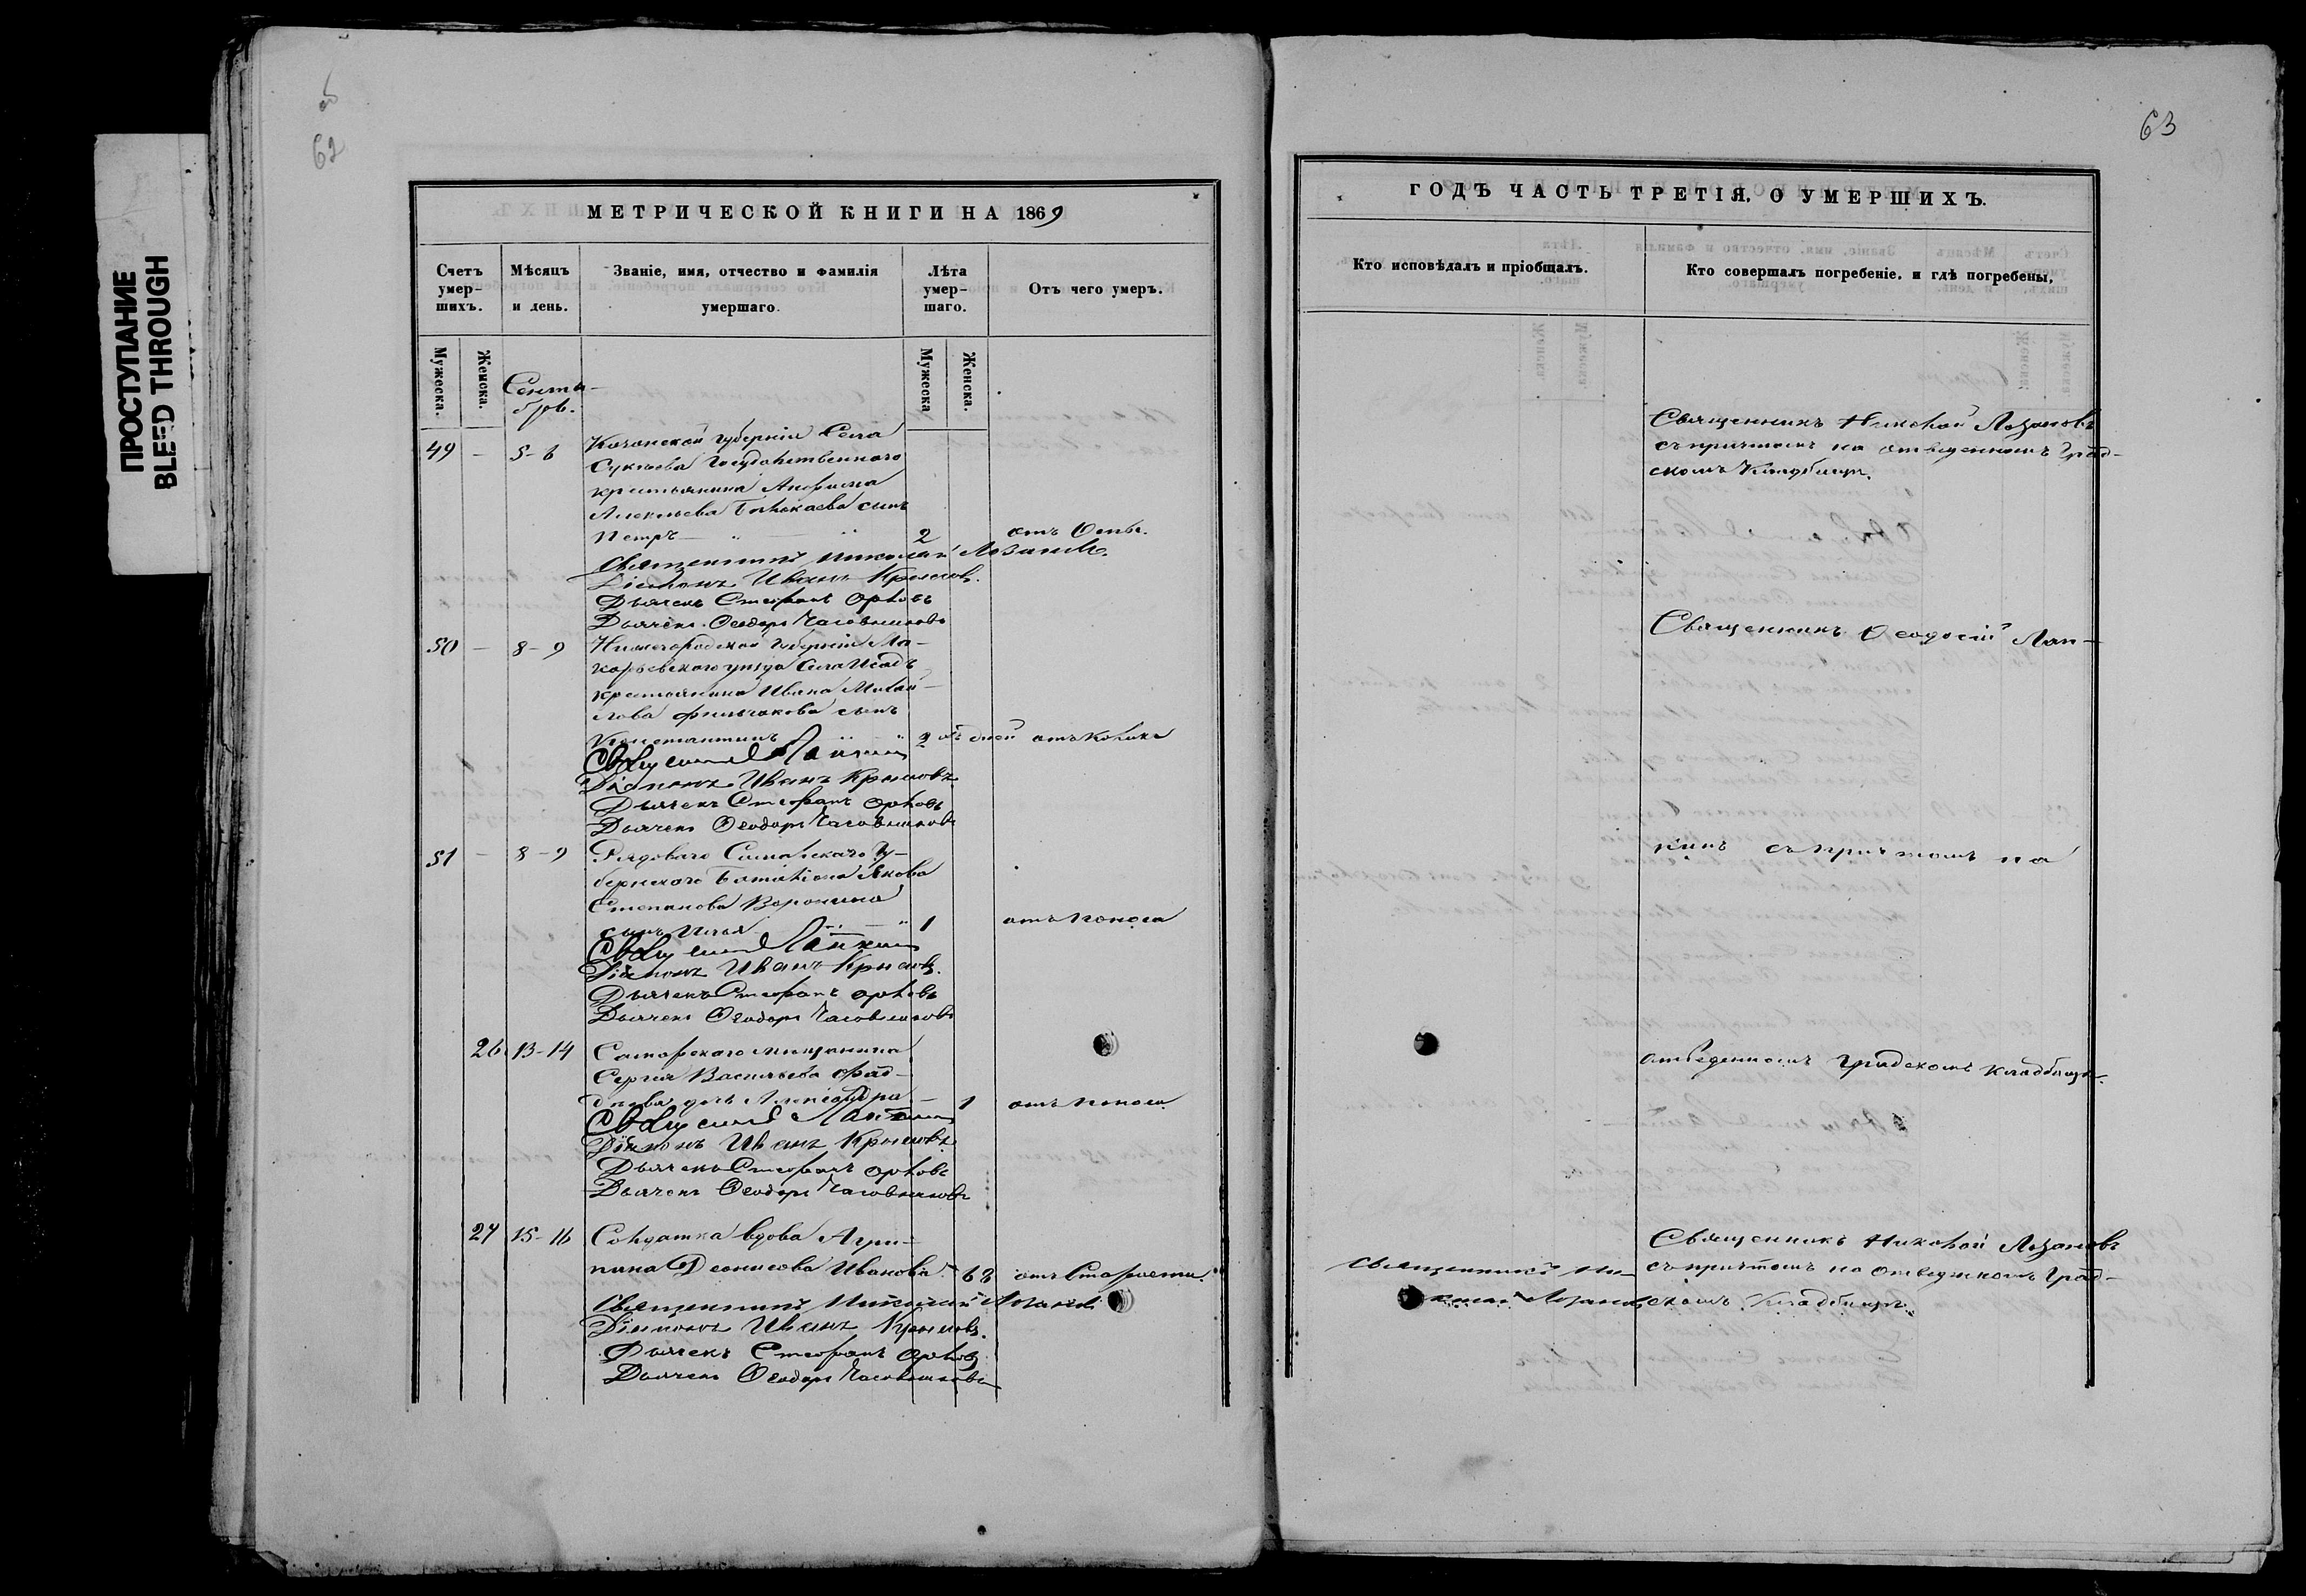 62
ПРОСТУПАНИЕ
BLEED THROUGH
МЕТРИЧЕСКОЙ КНИГИ НА 1869
Счетъ умер-шихъ.
Мѣсяцъ и день.
Званіе, имя, отчество и фамилія умершаго.
Лѣта умер-шаго.
Отъ чего умеръ.
Мужеска.
Женска.
Мужеска
Женска.
Сентя-
брь.
49 - 5-6 Казанской губерніи Села
Государственнаго
крестьянина
Алексѣева сынъ
Петръ 2 отъ Оспы.
Священникъ Николай Лозановъ.
Діаконъ Иванъ Крыловъ.
Дьячекъ Стефанъ Орловъ
Дьячекъ Ѳеодоръ Часовниковъ
50 - 8-9 Нижегородской губерніи Ма-
карьевскаго уѣзда Села
крестьянина Ивана Михай-
лова сынъ
Константинъ дней отъ Колики
Священникъ Лапкинъ
Діаконъ Иванъ Крыловъ
Дьячекъ Стефанъ Орловъ
Дьячекъ Ѳеодоръ Часовниковъ
51 - 8-9 Рядоваго Самарскаго Гу-
бернскаго Баталіона Якова
Степанова Воронина
сынъ Илья 1 отъ поноса
Священникъ Лапкинъ
Діаконъ Иванъ Крыловъ.
Дьячекъ Стефанъ Орловъ
Дьячекъ Ѳеодоръ Часовниковъ
26 13-14 Самарскаго мищанина
Сергея Васильева Фад-
дѣева дочь Александра 1 отъ поноса
Священникъ Лапкинъ
Діаконъ Иванъ Крыловъ.
Дьячекъ Стефанъ Орловъ
Дьячекъ Ѳеодоръ Часовниковъ
27 15-16 Солдатка вдова Агри-
пина Деонисова Иванова 68 отъ Старости.
Священникъ Николай Лозановъ
Діаконъ Иванъ Крыловъ.
Дьячекъ Стефанъ Орловъ
Дьячекъ Ѳеодоръ Часовниковъ
63
ГОДЪ ЧАСТЬ ТРЕТІЯ. О УМЕРШИХЪ.
Кто исповѣдалъ и пріобщалъ.
Кто совершалъ погребеніе, и гдѣ погребены,
Священникъ Николай Лозановъ
съ причтомъ на отведенномъ Град-
скомъ Кладбищѣ.
Священникъ Ѳеодосій Лап-
кинъ съ причтомъ на
отведенномъ Градскомъ кладбищѣ.
Священникъ Николай Лозановъ
съ причтомъ на отведенномъ Град-
скомъ Кладбищѣ.
Священникъ Ни-
колай Лозановъ